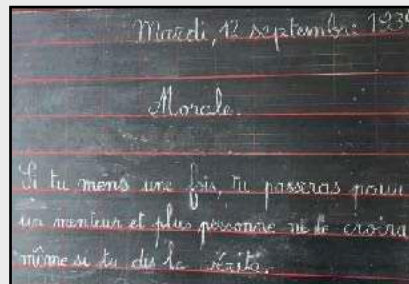 Mardi, 12 septembre
Morale.
Si tu mens une fois, tu passeras pour
un menteur et plus personne ne te croira
même si tu dis la vérité.